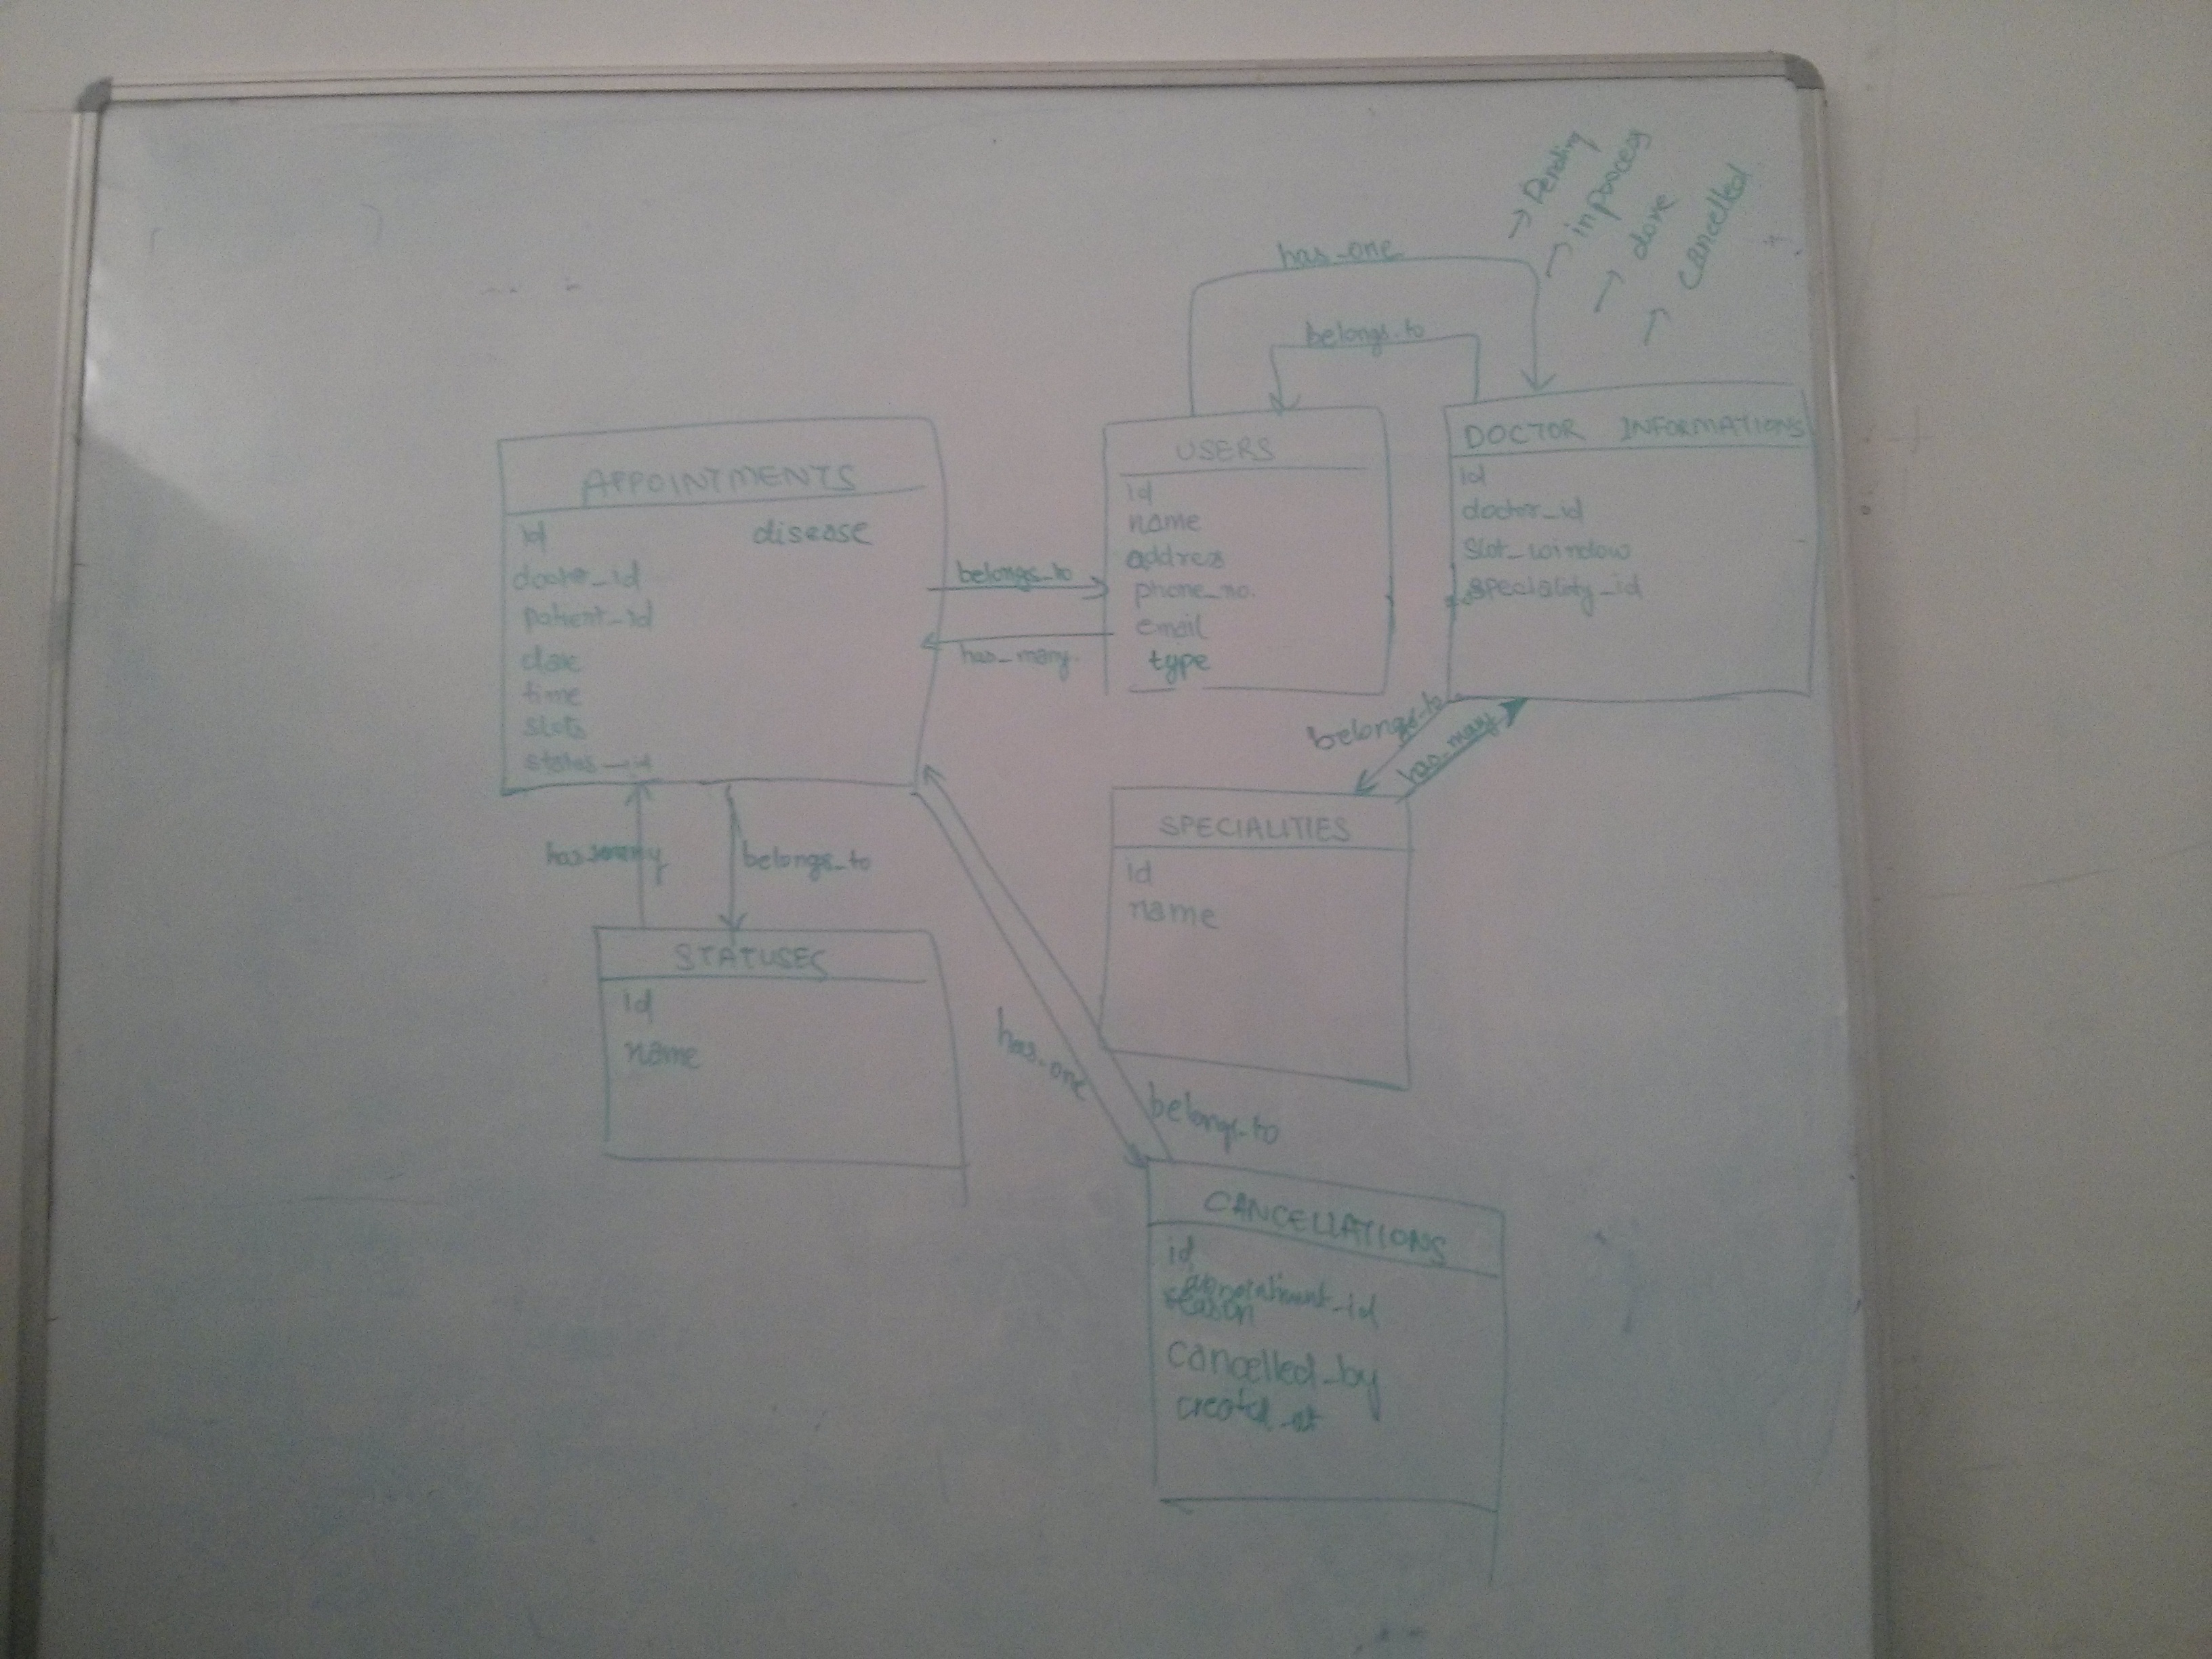 → Pending
→ inprocess
→ done
→ cancelled
has_one
belongs_to
APPOINTMENTS
id disease
doctor_id
patient_id
date
time
slots
status_id
belongs_to
has_many
USERS
id
name
address
phone_no.
email
type
DOCTOR INFORMATIONS
id
doctor_id
slot_window
speciality_id
belongs_to
has_many
SPECIALITIES
id
name
has_many
belongs_to
STATUSES
id
name
has_one
belongs_to
CANCELLATIONS
id
appointment_id
reason
cancelled_by
created_at